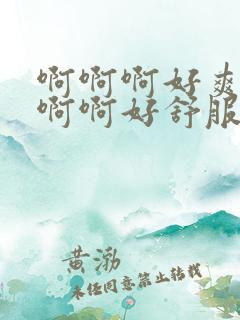 啊啊啊好爽
啊啊好舒服
黄渤
未经同意禁止转载